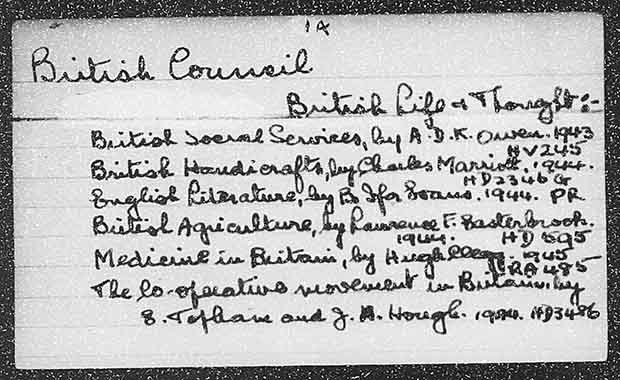 1A
British Council
British Life & Thought:-
British Social Services, by A.D.K. Owen. 1943
HV245
British Handicrafts, by Charles Marriott. 1944.
HD2346 G
English Literature, by B. Ifor Evans. 1944. PR
British Agriculture, by Laurence F. Easterbrook.
1944. HD595
Medicine in Britain, by Hugh Clegg. 1945
RA485
The Co-operative movement in Britain, by
S. Tophane and J. A. Hough. 1944. HD3486